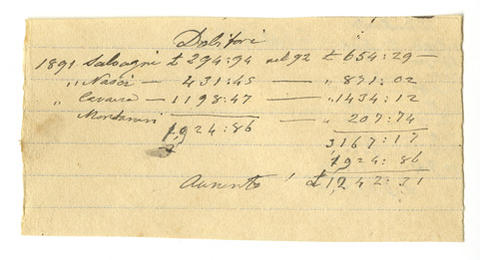 Debitori
1891 Salvagni £ 294:94 nel 92 £ 654:29 —
" Nasci — 431:45 — " 871:02
" Cavara — 1198:47 — " 1434:12
Montanari — " 207:74
1,924:86
3167:17
1924:86
Aumento £ 1,242:31